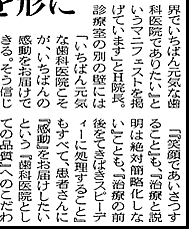 を形に
界でいちばん元気な歯
科医院でありたい』と
いうマニフェストを掲
げています」とH院長。
診療室の別の壁には
「いちばん元気
な歯科医院こそ
が、いちばんの
感動をお届けで
きる。そう信じ
『笑顔であいさつす
ること』も、『治療と説
明は絶対簡略化しな
い』ことも、『治療の前
後をてきぱきスピーデ
ィーに処理すること』
もすべて、患者さんに
『感動』をお届けしたい
という『歯科医院とし
ての品質』へのこだわ